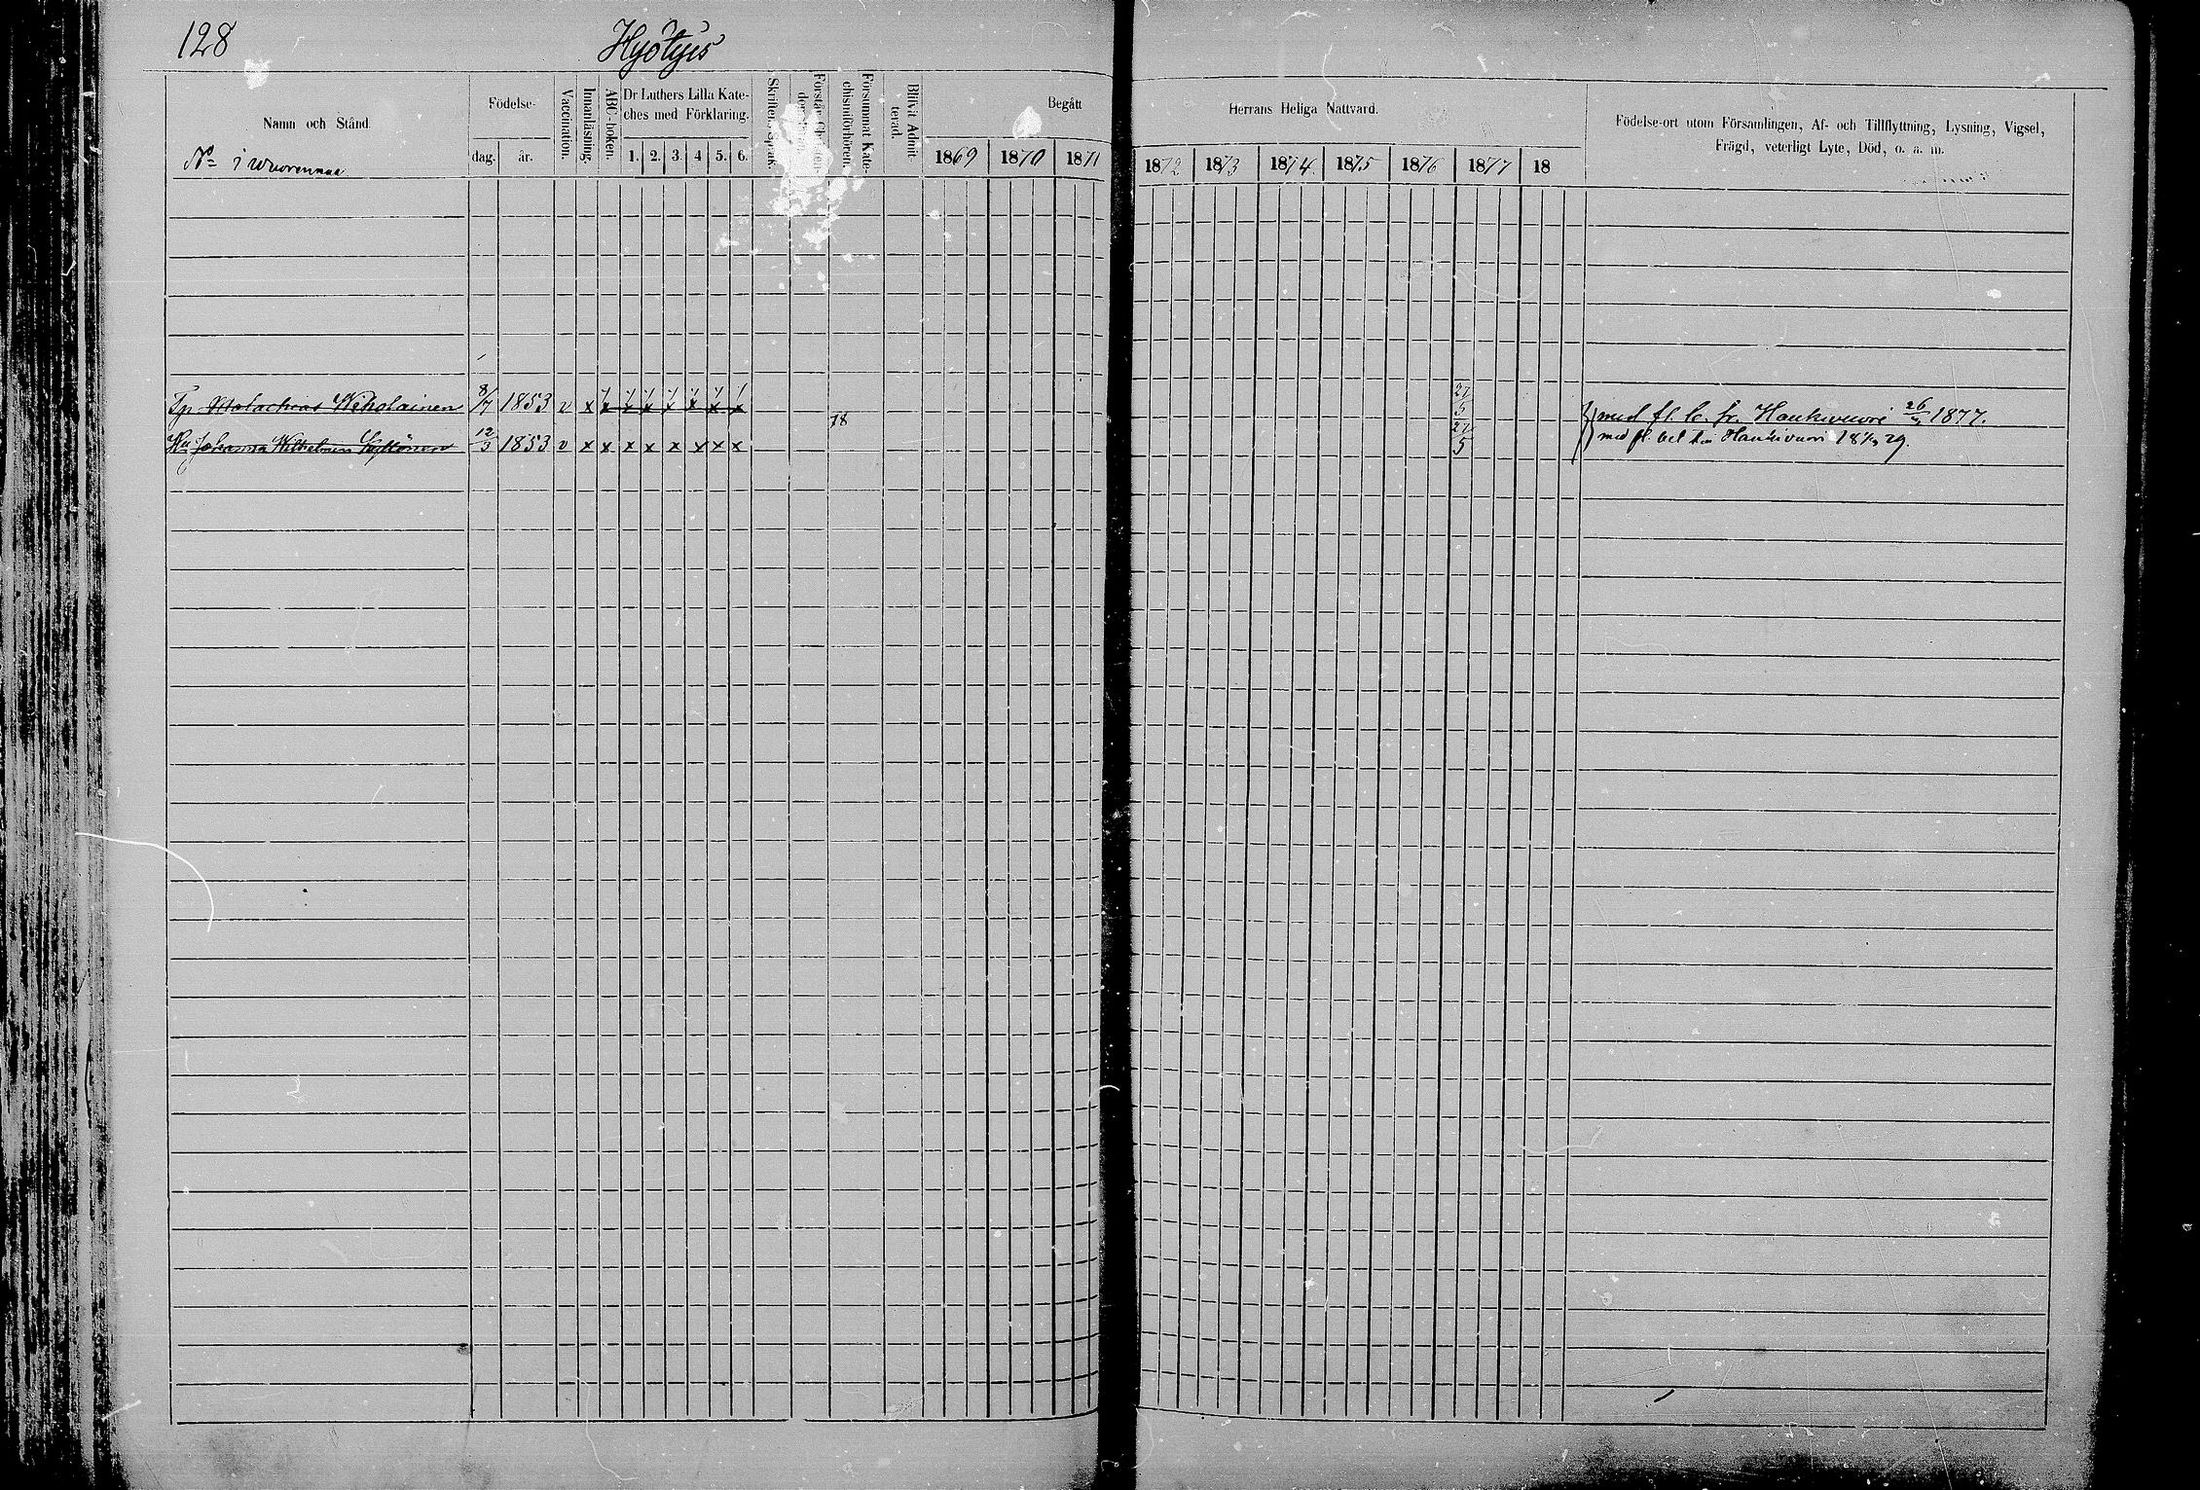 128
Hyötyis
Namn och Stånd.
Födelse-
dag.
år.
Vaccination.
Innanläsning.
ABC-boken.
Dr Luthers Lilla Kate-
ches med Förklaring.
1. 2. 3. 4. 5. 6.
Försummat Kate-
chismiförhören.
Blifvit Admit-
terad.
Begått
1869 1870 1871
Herrans Heliga Nattvard.
1872 1873 1874 1875 1876 1877 18
Födelse-ort utom Församlingen, Af- och Tillflyttning, Lysning, Vigsel,
Frägd, veterligt Lyte, Död, o. a. m.
No 1 Wuorenmaa
8/7 1853 v x
78
27/5
med fl. b. fr. Haukivuori 1877.
Hu Johanna Wilhelmina 12/3 1853 v x x x x x x x x
27/5
med fl. bet Haukivuori 79.